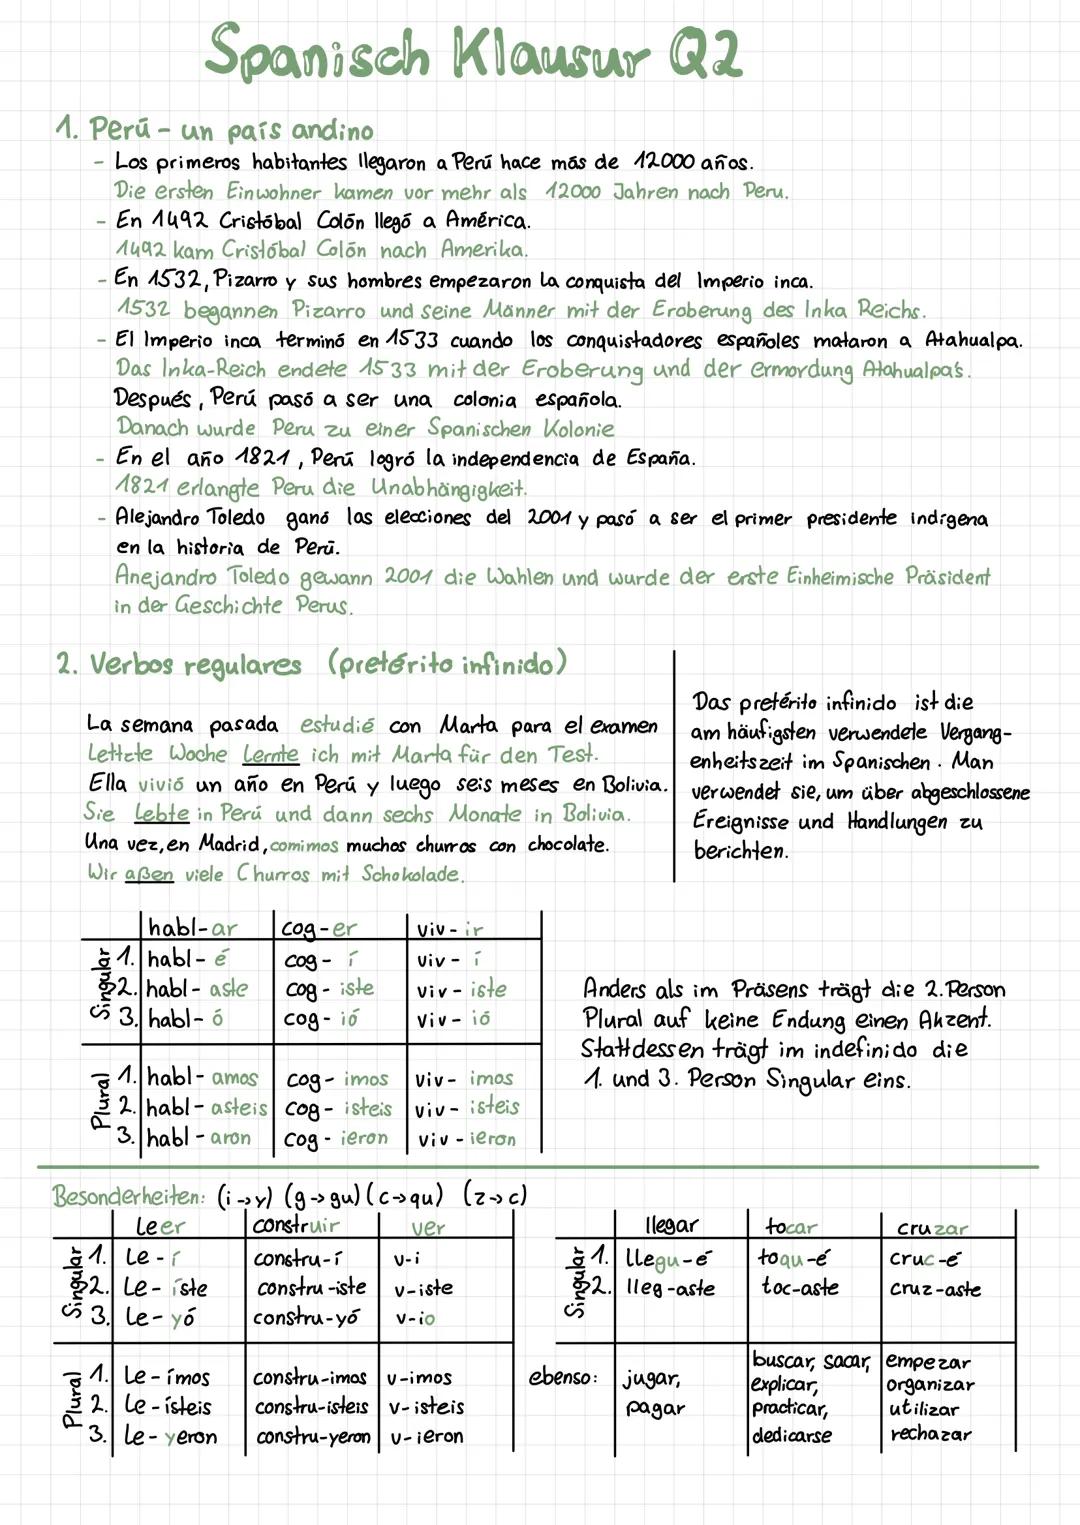 Spanisch Klausur Q2
1. Perú - un país andino
- Los primeros habitantes llegaron a Perú hace más de 12000 años.
Die ersten Einwohner kamen vor mehr als 12000 Jahren nach Peru.
- En 1492 Cristóbal Colón llegó a América.
1492 kam Cristóbal Colón nach Amerika.
- En 1532, Pizarro y sus hombres empezaron la conquista del Imperio inca.
1532 begannen Pizarro und seine Männer mit der Eroberung des Inka Reichs.
- El Imperio inca terminó en 1533 cuando los conquistadores españoles mataron a Atahualpa.
Das Inka-Reich endete 1533 mit der Eroberung und der ermordung Atahualpa's.
Después, Perú pasó a ser una colonia española.
Danach wurde Peru zu einer Spanischen Kolonie
- En el año 1821, Perú logró la independencia de España.
1821 erlangte Peru die Unabhängigkeit.
- Alejandro Toledo ganó las elecciones del 2001 y pasó a ser el primer presidente indígena
en la historia de Perú.
Anejandro Toledo gewann 2001 die Wahlen und wurde der erste Einheimische Präsident
in der Geschichte Perus.
2. Verbos regulares (pretérito infinido)
La semana pasada estudié con Marta para el examen
Letzte Woche Lernte ich mit Marta für den Test.
Ella vivió un año en Perú y luego seis meses en Bolivia.
Sie Lebte in Perú und dann sechs Monate in Bolivia.
Una vez, en Madrid, comimos muchos churros con chocolate.
Wir aßen viele Churros mit Schokolade.
Das pretérito infinido ist die
am häufigsten verwendete Vergang-
enheitszeit im Spanischen. Man
verwendet sie, um über abgeschlossene
Ereignisse und Handlungen zu
berichten.
habl-ar cog-er viv-ir
Singular
1. habl-é cog-í viv-í
2. habl-aste cog-iste viv-iste
3. habl-ó cog-ió viv-ió
Plural
1. habl-amos cog-imos viv-imos
2. habl-asteis cog-isteis viv-isteis
3. habl-aron cog-ieron viv-ieron
Anders als im Präsens trägt die 2. Person
Plural auf keine Endung einen Akzent.
Stattdessen trägt im indefinido die
1. und 3. Person Singular eins.
Besonderheiten: (i->y) (g->gu) (c->qu) (z->c)
Leer construir ver
Singular
1. Le-í constru-í v-i
2. Le-íste constru-iste v-iste
3. Le-yó constru-yó v-io
Plural
1. Le-ímos constru-imos v-imos
2. Le-ísteis constru-isteis v-isteis
3. Le-yeron constru-yeron v-ieron
llegar tocar cruzar
Singular
1. llegu-é toqu-é cruc-é
2. lleg-aste toc-aste cruz-aste
ebenso:
jugar,
pagar
buscar, sacar,
explicar,
practicar,
dedicarse
empezar
organizar
utilizar
rechazar